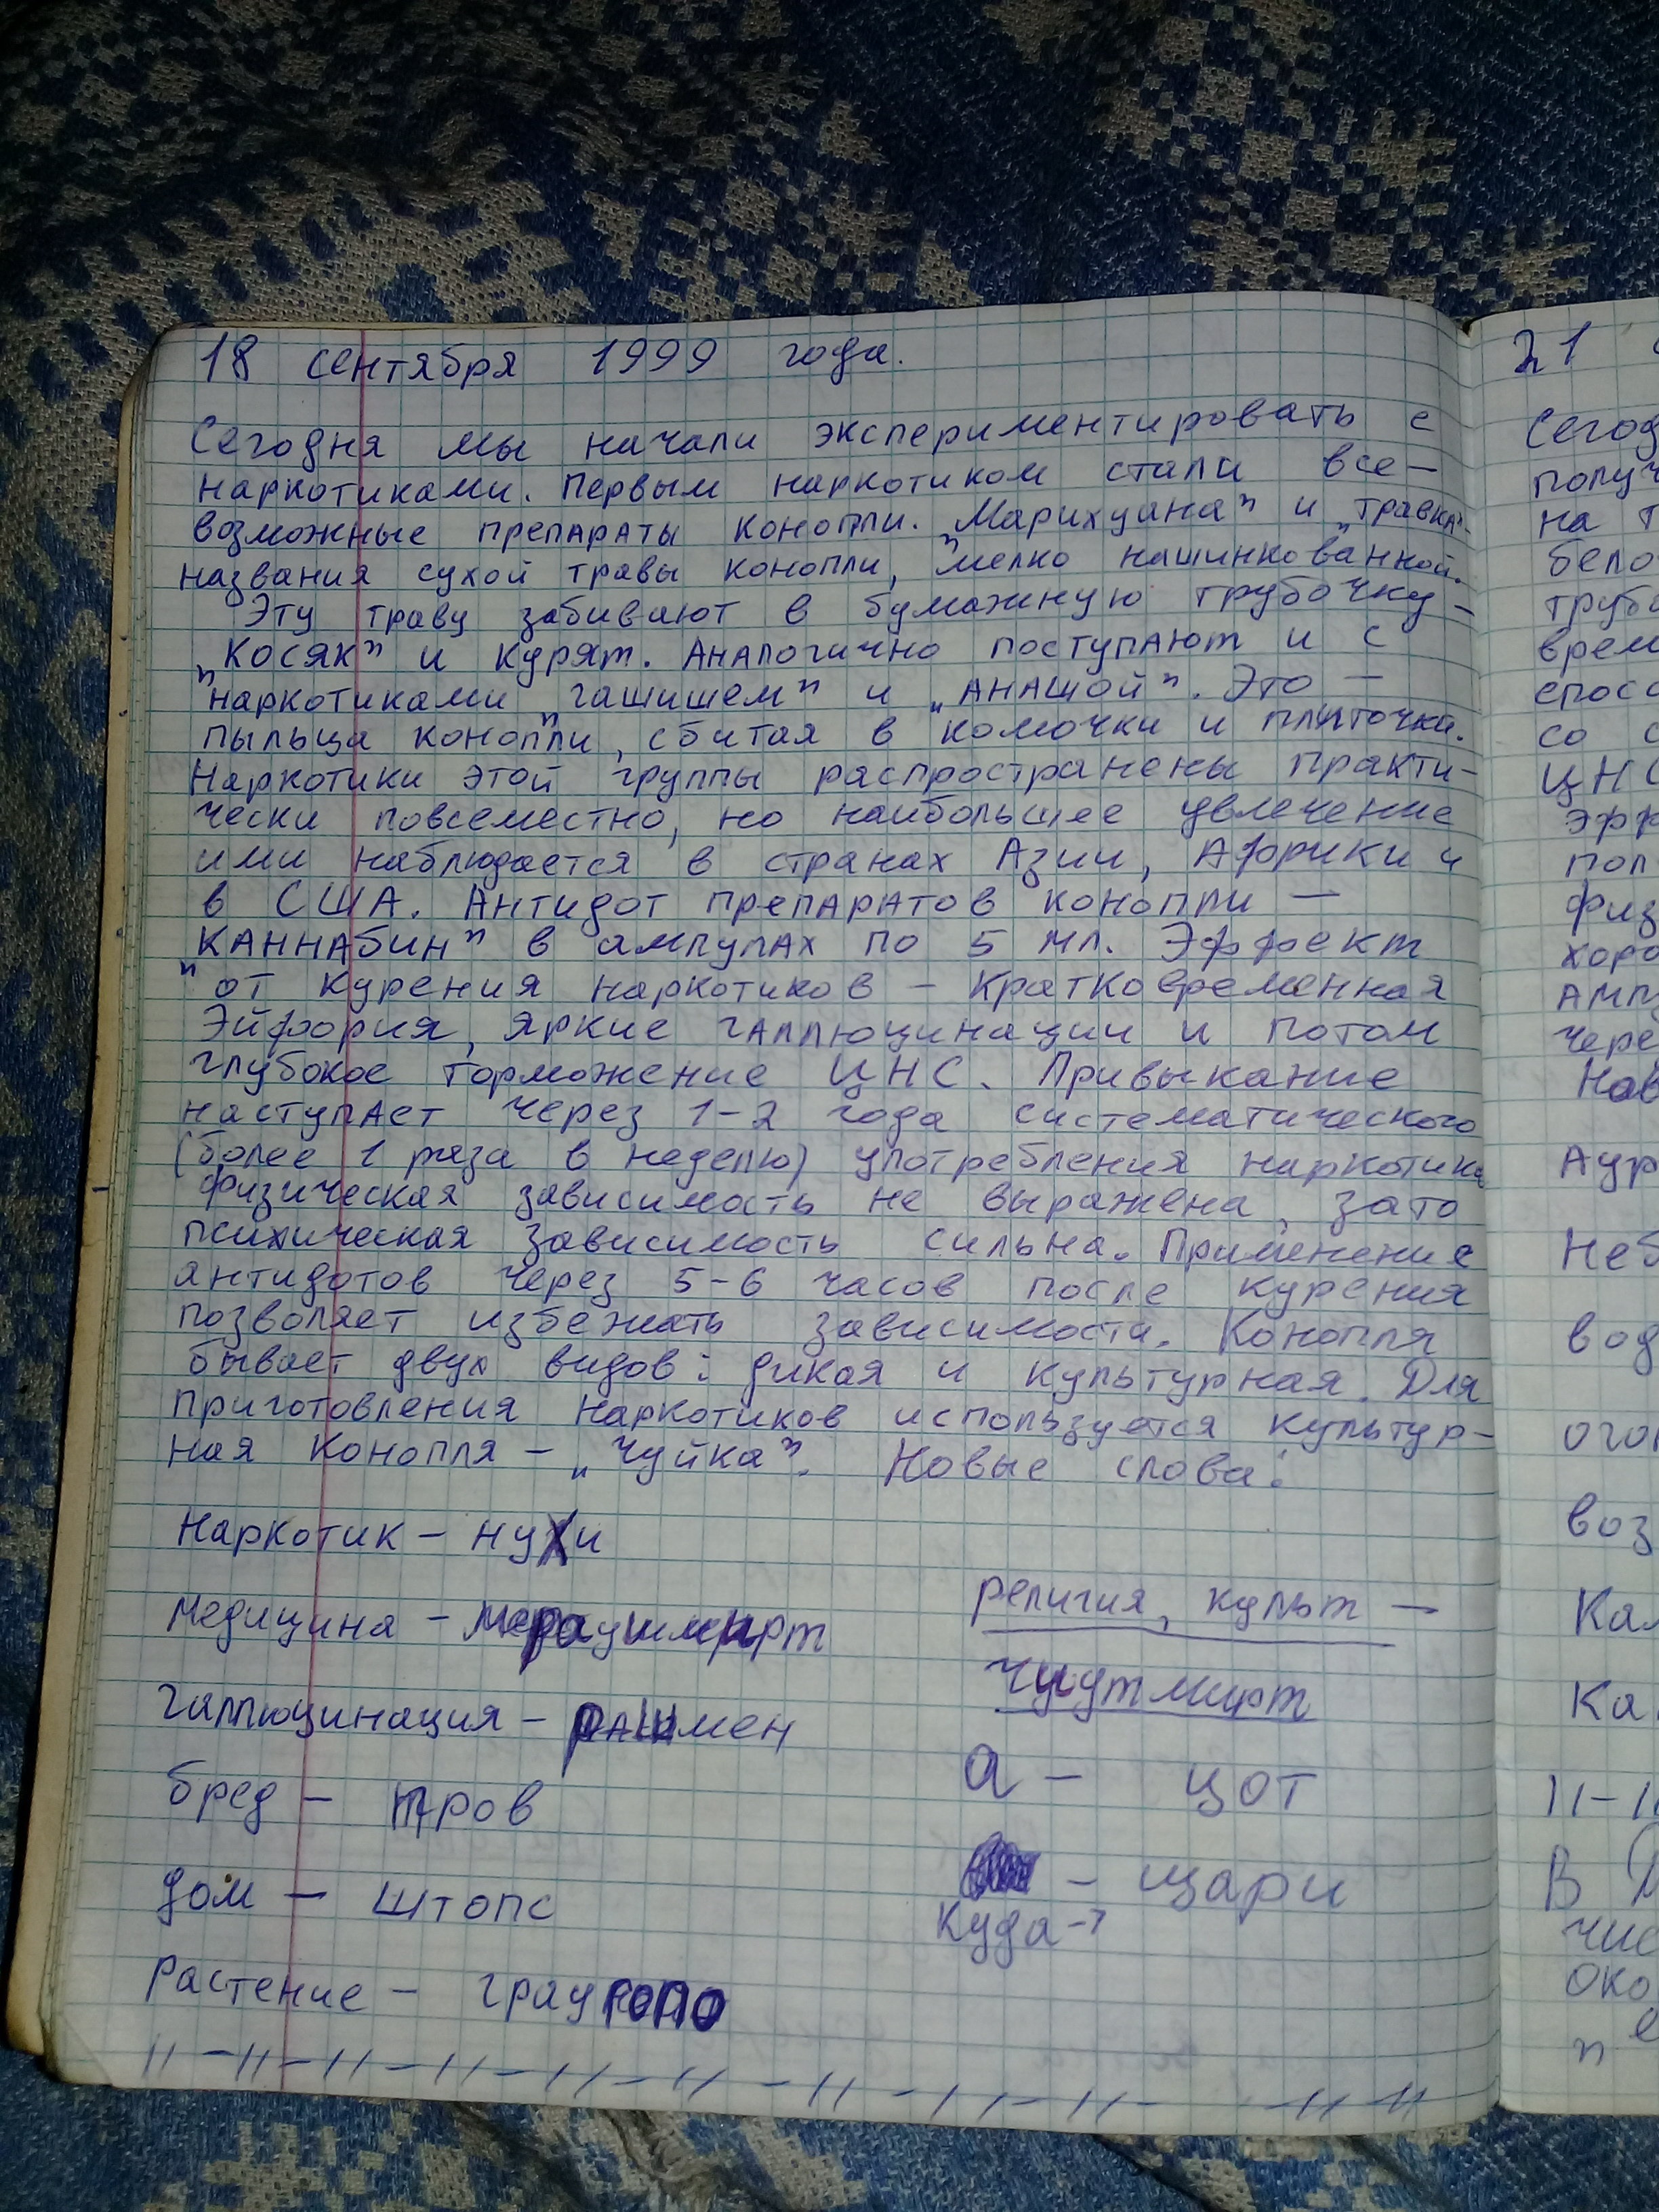 18 сентября 1999 года.
Сегодня мы начали экспериментировать с
наркотиками. Первым наркотиком стали все-
возможные препараты конопли. „Марихуана" и „травка"-
названия сухой травы конопли, мелко нашинкованной.
Эту траву забивают в бумажную трубочку -
„косяк" и курят. Аналогично поступают и с
наркотиками „гашишем" и „анашой". Это -
пыльца конопли, сбитая в комочки и плиточки.
Наркотики этой группы распространены практи-
чески повсеместно, но наибольшее увлечение
ими наблюдается в странах Азии, Африки и
в США. Антидот препаратов конопли -
„Каннабин" в ампулах по 5 мл. Эффект
от курения наркотиков - кратковременная
Эйфория, яркие галлюцинации и потом
глубокое торможение ЦНС. Привыкание
наступает через 1-2 года систематического
(более 1 раза в неделю) употребления наркотика
физическая зависимость не выражена, зато
психическая зависимость сильна. Применение
антидотов через 5-6 часов после курения
позволяет избежать зависимости. Конопля
бывает двух видов: дикая и культурная. Для
приготовления наркотиков используется культур-
ная конопля - „чуйка". Новые слова:
наркотик - нухи
медицина -
галлюцинация - рашмен
бред - тров
дом - штопс
растение - грауголо
религия, культ -
чуутмирт
а - цот
- щари
куда -?
11-11-11-11-11-11-11-11-11-11-11
21
Сегод
получ
на т
бело
трубо
врем
спосо
со с
ЦНС
Эфф
пол
физ
хоро
амп
чере
Нов
Аур
Неб
вод
огон
воз
Кал
Ка
11-11
В
чис
око